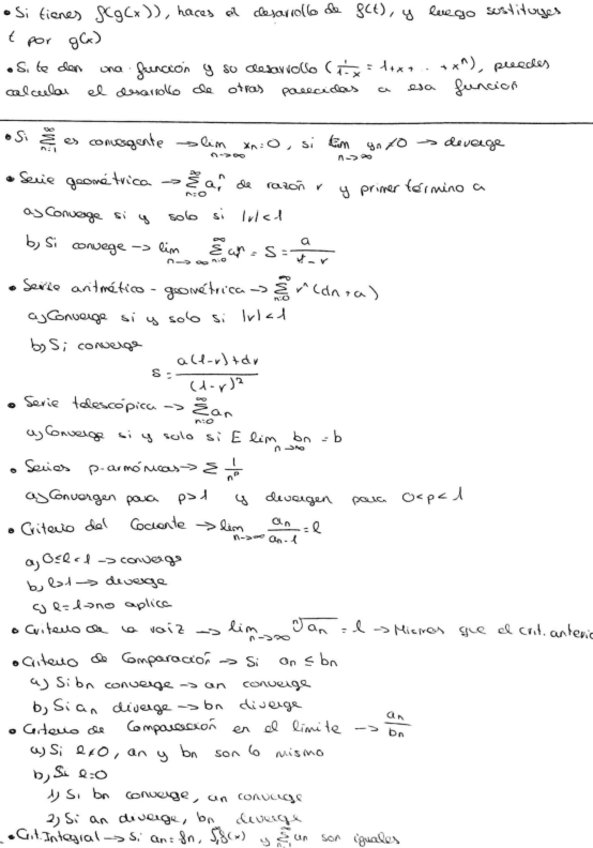 • Si tienes f(g(x)), haces el desarrollo de f(t), y luego sustituyes
t por g(x)
• Si te dan una función y su desarrollo (1/(1-x) = 1+x+ . . +xⁿ), puedes
calcular el desarrollo de otras parecidas a esa funcion
• Si ∑_{n=1}^∞ es convergente → lim_{n→∞} xn=0, si lim_{n→∞} yn≠0 → diverge
• Serie geométrica → ∑_{n=0}^∞ a rⁿ de razón r y primer término a
a) Converge si y solo si |r|<1
b) Si converge → lim_{n→∞} ∑_{n=0}^∞ arⁿ = S = a/(1-r)
• Serie aritmético - geométrica → ∑_{n=0}^∞ rⁿ(dn+a)
a) Converge si y solo si |r|<1
b) Si converge
S = (a(1-r)+dr)/(1-r)²
• Serie telescópica → ∑_{n=0}^∞ an
a) Converge si y solo si E lim_{n→∞} bn = b
• Series p-armónicas → ∑ 1/nᵖ
a) Convergen para p>1 y divergen para 0<p<1
• Criterio del Cociente → lim_{n→∞} an/an-1 = l
a) 0≤l<1 → converge
b) l>1 → diverge
c) l=1 → no aplica
• Criterio de la raiz → lim_{n→∞} ⁿ√an = l → Mismos que el crit. anterio
• Criterio de Comparación → Si an ≤ bn
a) Si bn converge → an converge
b) Si an diverge → bn diverge
• Criterio de Comparación en el limite → an/bn
a) Si l≠0, an y bn son lo mismo
b) Si l=0
1) Si bn converge, an converge
2) Si an diverge, bn diverge
• Crit. Integral → Si an=fn, ∫f(x) y ∑_{n=1}^∞ an son iguales